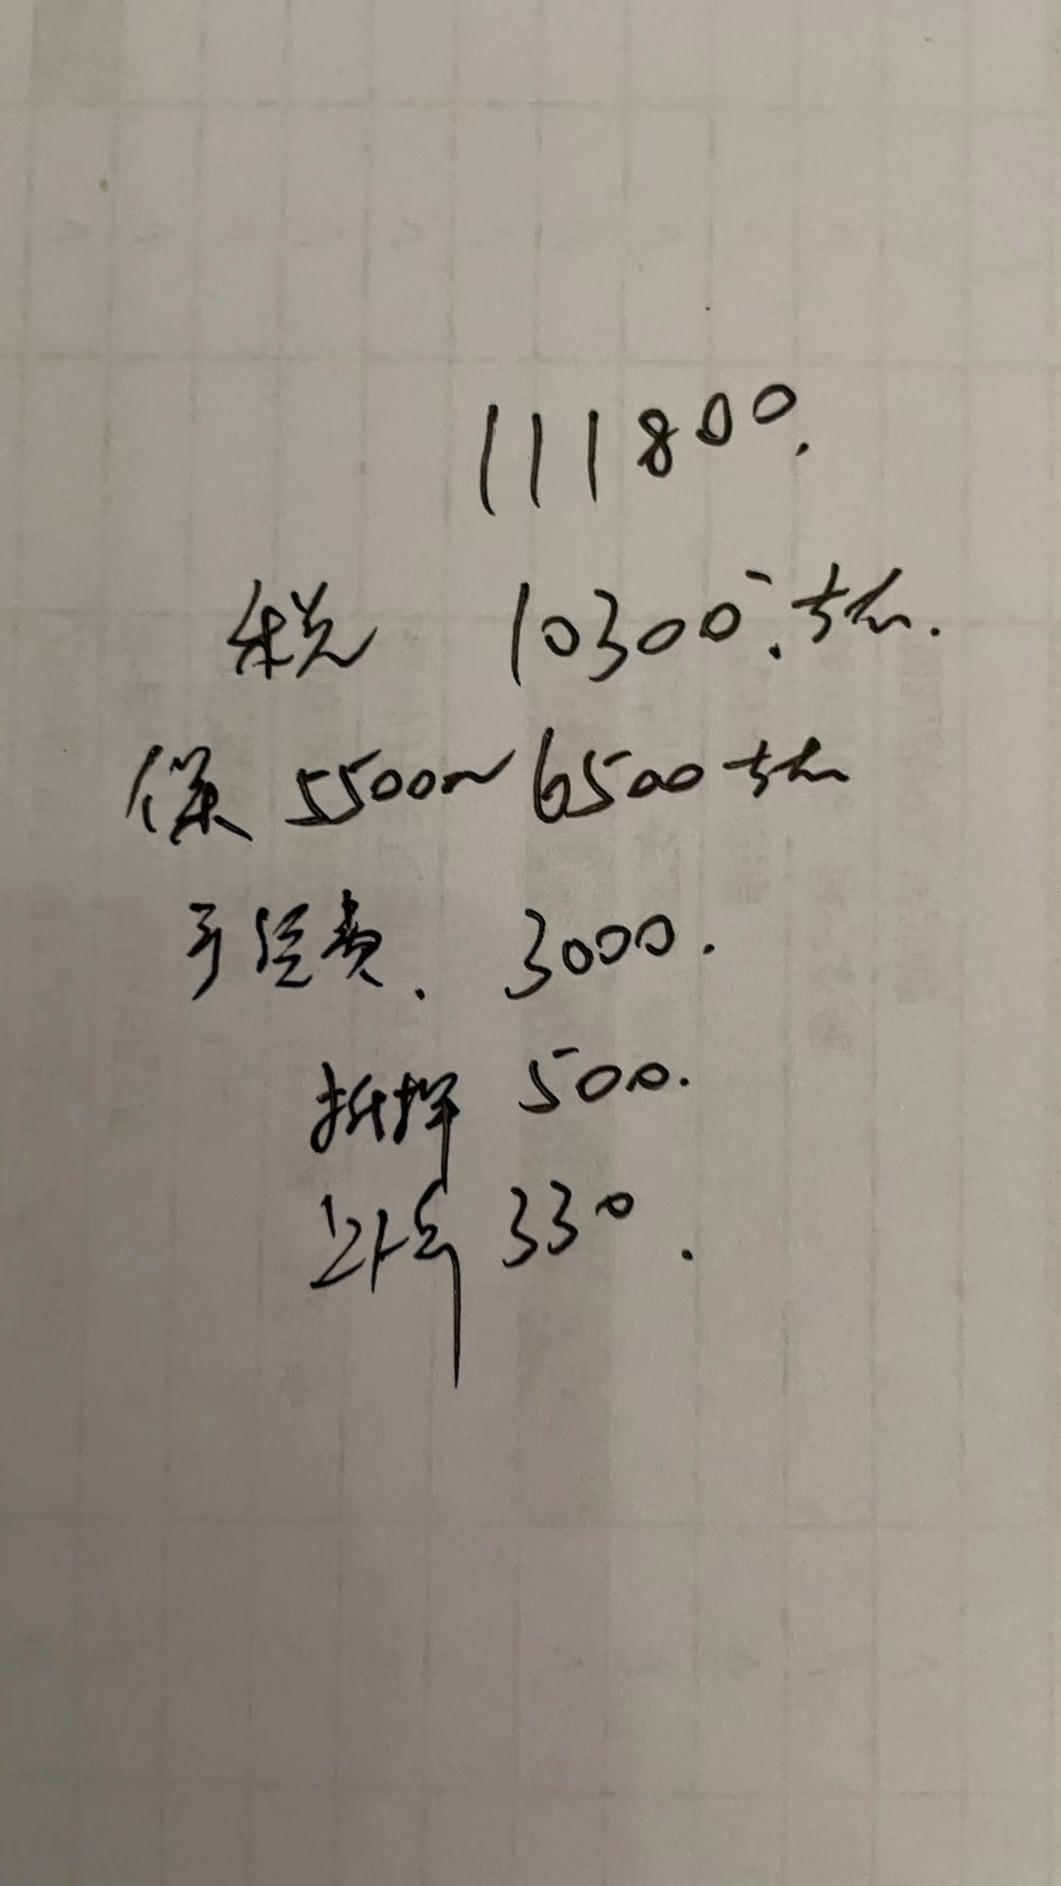 111800.
税 10300.左右.
保 5500~6500左右
手续费. 3000.
抵押 500.
上牌 330.